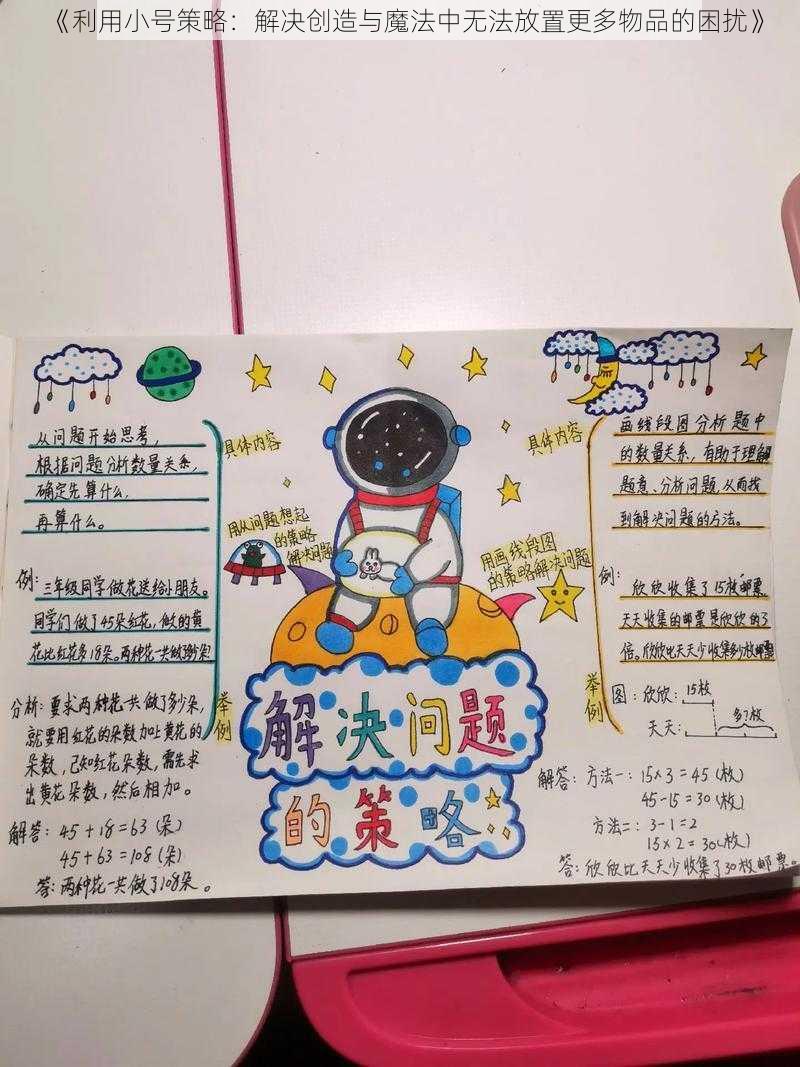 《利用小号策略：解决创造与魔法中无法放置更多物品的困扰》
从问题开始思考，
根据问题分析数量关系，
确定先算什么，
再算什么。
具体内容
用从问题想起
的策略
解决问题
例：三年级同学做花送给小朋友。
同学们做了45朵红花，做的黄
花比红花多18朵。两种花一共做了多少朵
分析：要求两种花一共做了多少朵，
就要用红花的朵数加上黄花的
朵数，已知红花朵数，需先求
出黄花朵数，然后相加。
举例
解答：45+18=63（朵）
45+63=108（朵）
答：两种花一共做了108朵。
解决问题
的策略
具体内容
画线段图分析题中
的数量关系，有助于理解
题意、分析问题，从而找
到解决问题的方法。
用画线段图
的策略解决问题
例：
欣欣收集了15枚邮票
天天收集的邮票是欣欣的3
倍。欣欣比天天少收集多少枚邮票
举例
图：欣欣：15枚
天天：多?枚
解答：方法一：15×3=45（枚）
45-15=30（枚）
方法二：3-1=2
15×2=30（枚）
答：欣欣比天天少收集了30枚邮票。